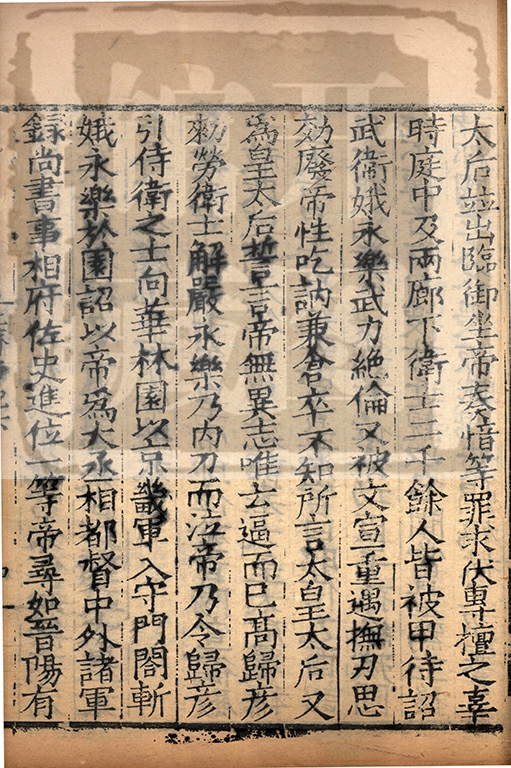 太后並出臨御坐帝奏愔等罪求伏專擅之辜
時庭中及兩廊下衛士二千餘人皆被甲待詔
武衛娥永樂武力絶倫又被文宣重遇撫刃思
効廢帝性吃訥兼倉卒不知所言太皇太后又
為皇太后誓言帝無異志唯云逼而已髙歸彦
勑勞衛士解嚴永樂乃内刀而泣帝乃令歸彦
引侍衛之士向華林園以京畿軍入守門閤斬
娥永樂於園詔以帝為大丞相都督中外諸軍
錄尚書事相府佐史進位一等帝尋如晉陽有